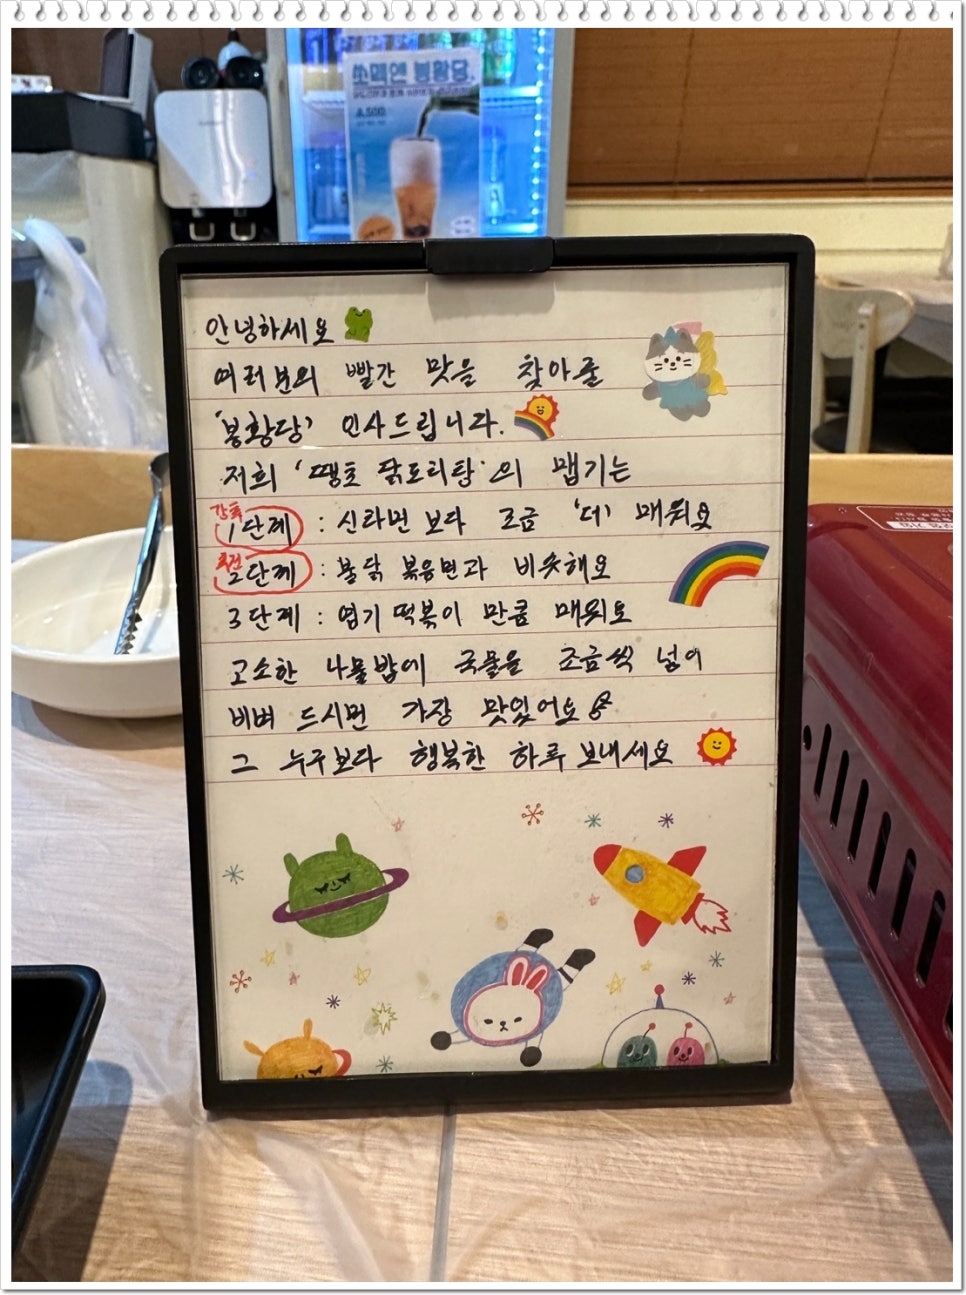 쏘맥엔 봉황당.
안녕하세요
여러분의 빨간 맛을 찾아줄
'봉황당' 인사드립니다.
저희 '땡초 닭도리탕'의 맵기는
강추
1단계 : 신라면 보다 조금 '더' 매워요
추천
2단계 : 불닭 볶음면과 비슷해요
3단계 : 엽기 떡볶이 만큼 매워요
고소한 나물밥에 국물을 조금씩 넣어
비벼 드시면 가장 맛있어요
그 누구보다 행복한 하루 보내세요